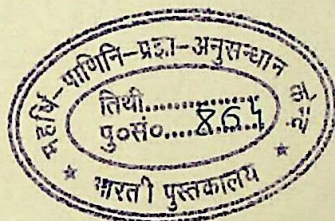 महर्षि-पाणिनि-प्रज्ञा-अनुसन्धान केन्द्र
तिथी..............
पु०सं०....864
* भारती पुस्तकालय *